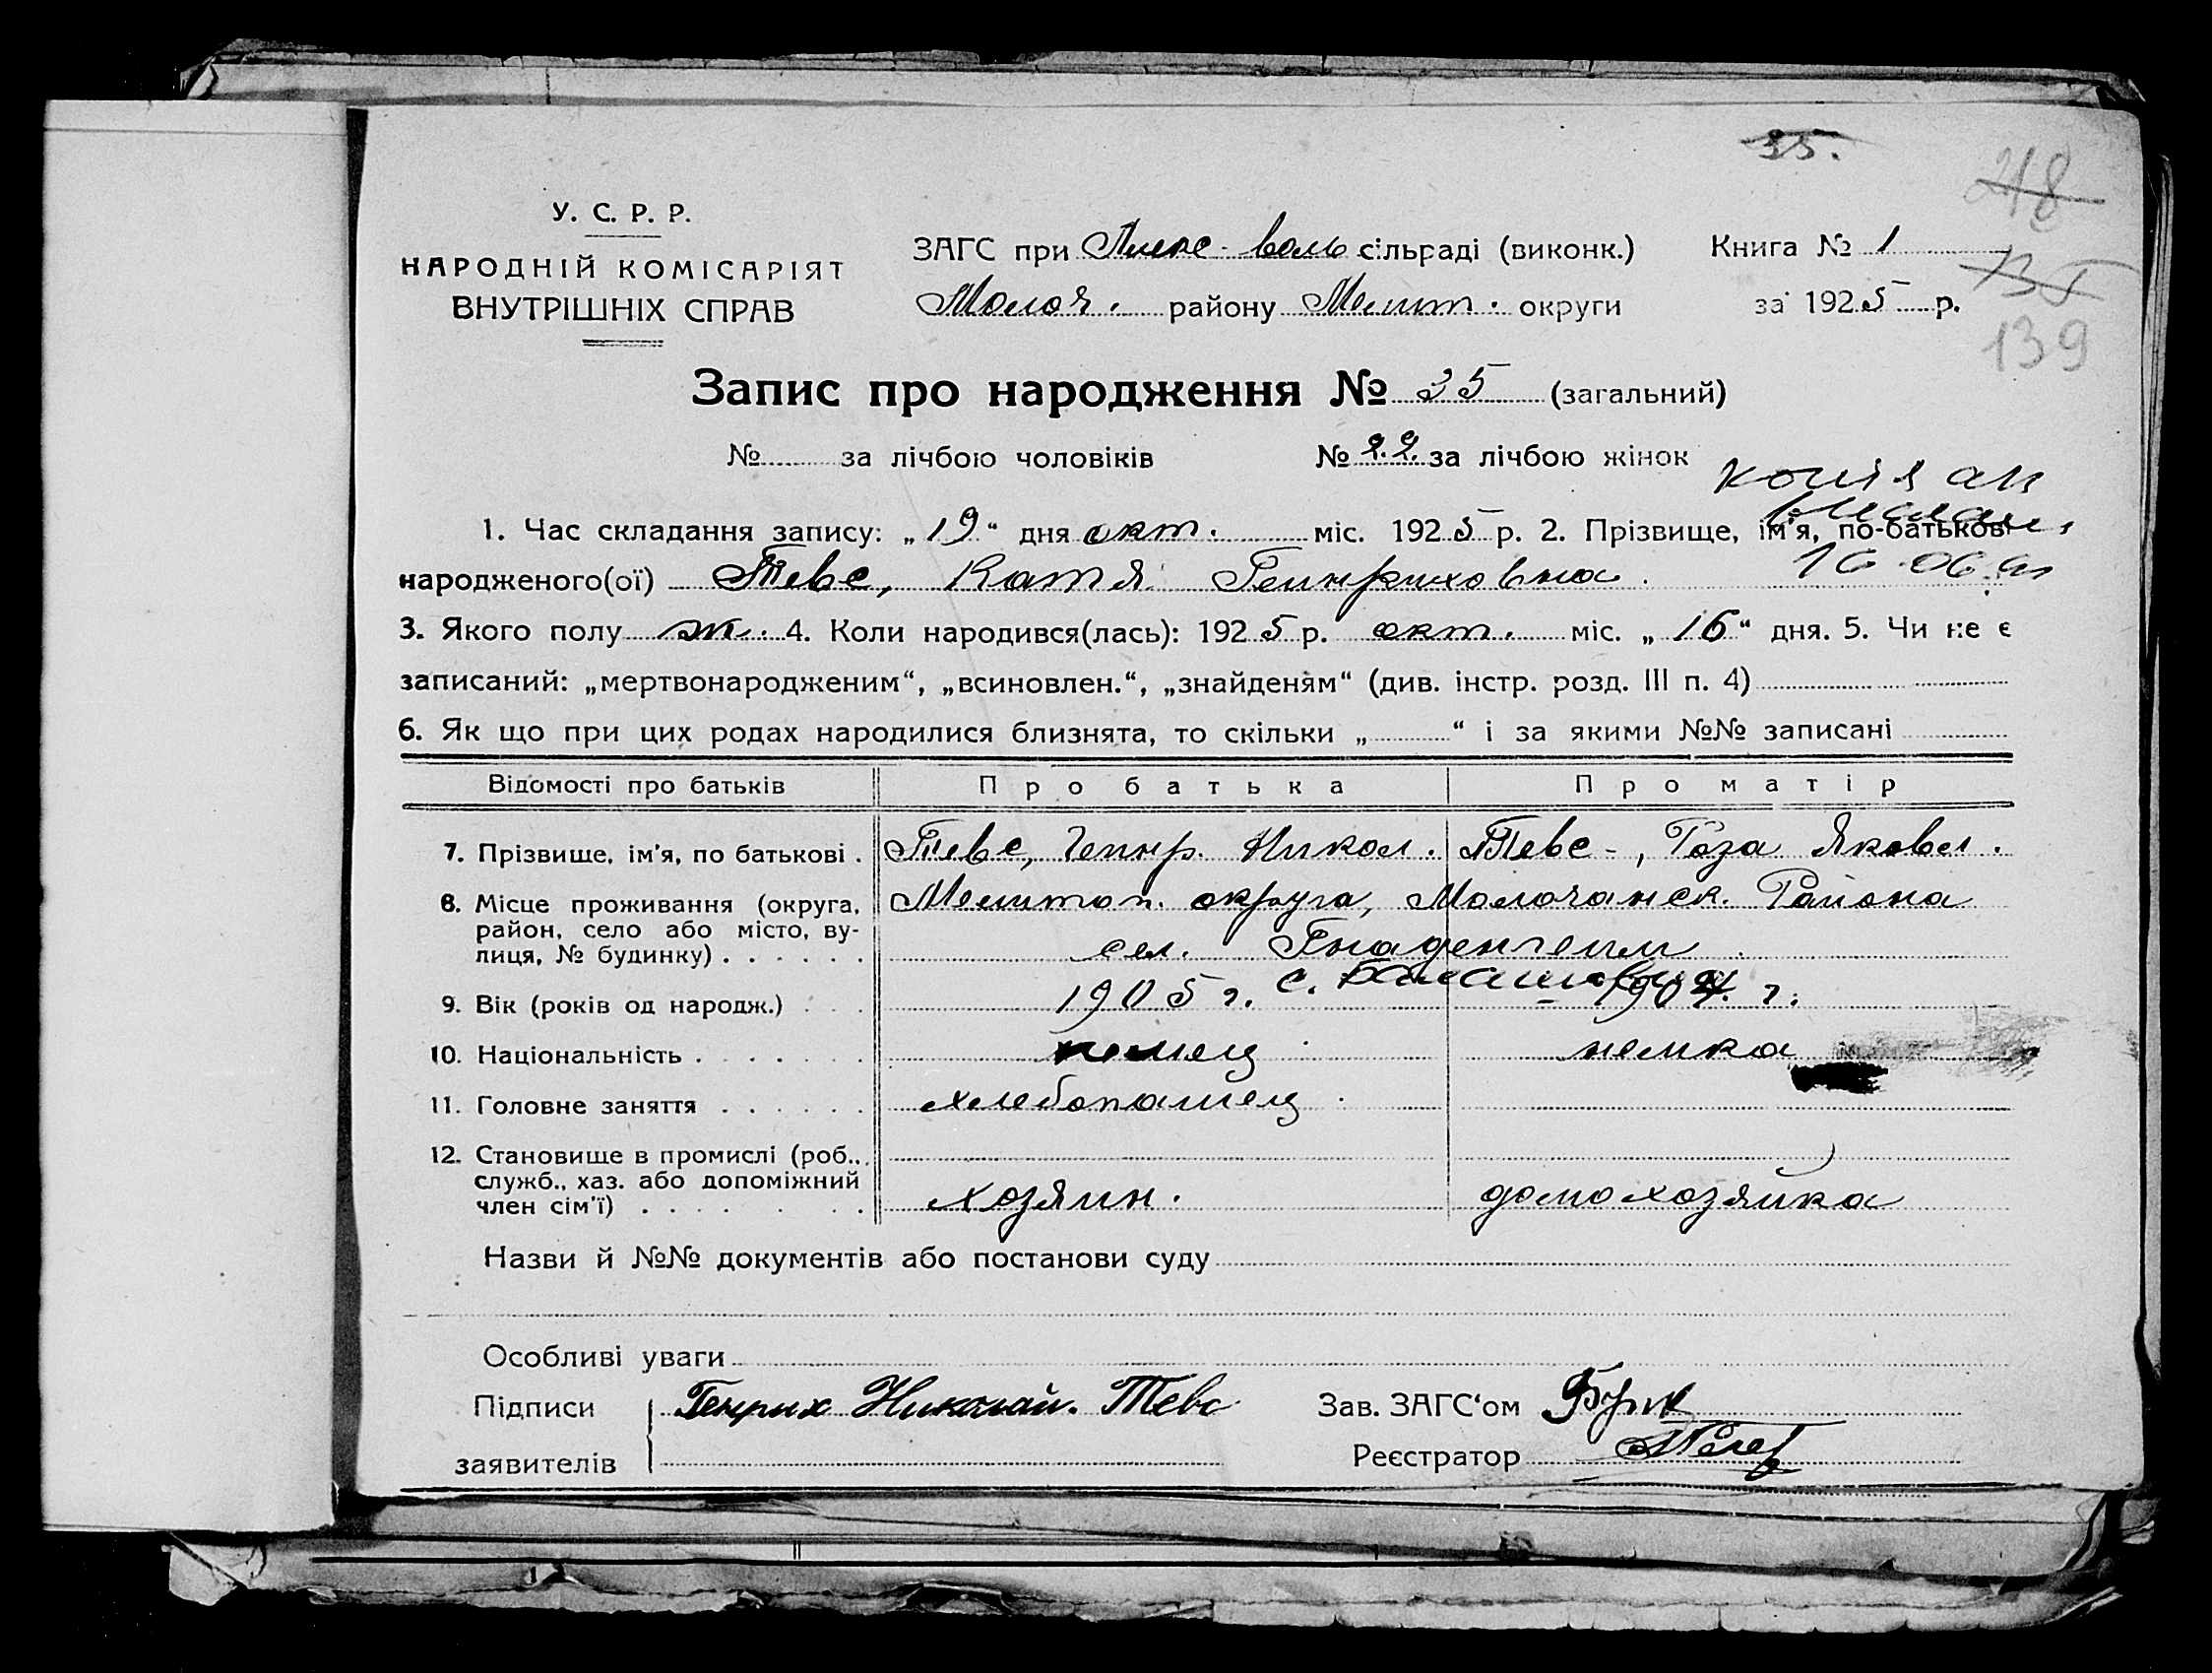 35.
218
У. С. Р. Р.
НАРОДНІЙ КОМІСАРІЯТ
ВНУТРІШНІХ СПРАВ
ЗАГС при Алекс-валь сільраді (виконк.) Книга № 1
135
Молоч. району Мелит. округи за 1925 р.
139
Запис про народження № 35 (загальний)
№ за лічбою чоловіків № 22 за лічбою жінок
копія ак
1. Час складання запису: „19“ дня окт. міс. 1925 р. 2. Прізвище, ім'я, по-батькові
народженого(ої) Тевс, Катя Генриховна.
3. Якого полу ж. 4. Коли народився(лась): 1925 р. окт. міс. „16“ дня. 5. Чи не є
записаний: „мертвонародженим“, „всиновлен.“, „знайденям“ (див. інстр. розд. III п. 4)
6. Як що при цих родах народилися близнята, то скільки „ “ і за якими №№ записані
Відомості про батьків Про батька Про матір
7. Прізвище, ім'я, по батькові . Тевс, Генр. Никол. Тевс -, Роза Яковл.
8. Місце проживання (округа, район, село або місто, вулиця, № будинку) . . . . . . Мелитоп. округа, Молочанск. Района
сел. Гнаденгейм
с.
9. Вік (років од народж.) . . . 1905 г. 1904 г.
10. Національність . . . . . . . немец немка
11. Головне заняття . . . . . . хлебопашец
12. Становище в промислі (роб., служб., хаз. або допоміжний член сім'ї) . . . . . . . хозяин. домохозяйка
Назви й №№ документів або постанови суду
Особливі уваги
Підписи заявителів Генрих Николай. Тевс
Зав. ЗАГС‘ом
Реєстратор